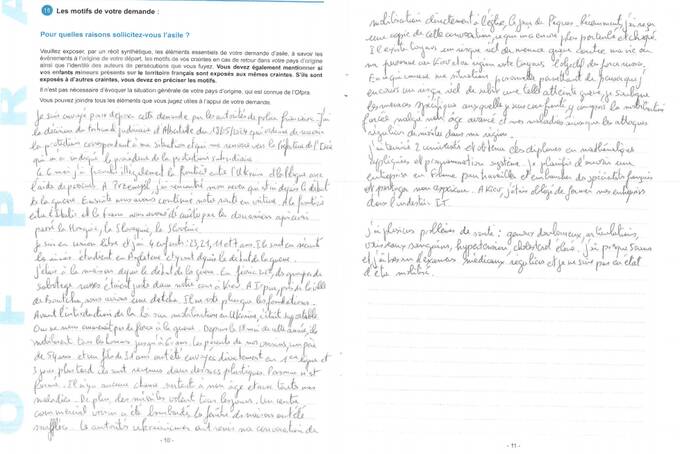 OFPRA
15 Les motifs de votre demande :
Pour quelles raisons sollicitez-vous l'asile ?
Veuillez exposer, par un récit synthétique, les éléments essentiels de votre demande d'asile, à savoir les
événements à l'origine de votre départ, les motifs de vos craintes en cas de retour dans votre pays d'origine
ainsi que l'identité des auteurs de persécutions que vous fuyez. Vous devez également mentionner si
vos enfants mineurs présents sur le territoire français sont exposés aux mêmes craintes. S'ils sont
exposés à d'autres craintes, vous devez en préciser les motifs.
Il n'est pas nécessaire d'évoquer la situation générale de votre pays d'origine, qui est connue de l'Ofpra.
Vous pouvez joindre tous les éléments que vous jugez utiles à l'appui de votre demande.
Je suis envoyé pour déposer cette demande par les autorités de police française. J'ai
la décision du tribunal judiciaire du 13/05/2024 qui ordonne
la protection correspondant à ma situation et qui me renvoie vers la
qui m'a indiqué la procédure de la protection subsidiaire.
Le 6 mai j'ai franchi illégalement la frontière entre l'Ukraine et la Pologne avec
l'aide de passeur. A Przemysl, j'ai rencontré mon
de la guerre. Ensuite nous avons continué notre route en voiture. A la frontière
entre l'Italie et la France, nous avons été arrêtés par les douaniers après avoir
passé la Hongrie, la Slovaquie, la Slovénie.
Je suis en union libre et j'ai 4 enfants : 23, 21, 11 et 7 ans. Ils sont en sécurité
les aînés étudient en Angleterre et y sont depuis le début de la guerre.
J'étais à la maison depuis le début de la guerre. En février 2022, des groupes de
sabotage russes étaient juste dans notre cour à Kiev. A Irpin, près de la ville
de Boutcha, nous avons une datcha. Il ne reste plus que les fondations.
Avant l'introduction de la loi sur mobilisation en Ukraine, c'était supportable.
On ne nous emmenait pas de force à la guerre. Depuis le 18 mai de cette année, ils
mobilisent tous les hommes jusqu'à 60 ans. Les parents de nos voisins, un père
de 54 ans et un fils de 31 ans ont été envoyés directement en 1ère ligne et
3 jours plus tard ils sont revenus dans des sacs plastiques. Personne n'est
formé. Il n'y a aucune chance surtout à mon âge et avec toutes mes
maladies. De plus, des missiles volent tous les jours. Un centre
commercial voisin a été bombardé, les fenêtres de maison ont été
soufflées. Les autorités ukrainiennes ont remis ma convocation de
- 10 -
mobilisation directement à l'église, le jour de Pâques. Récemment, j'ai reçu
une copie de cette convocation,
Il existe toujours un risque réel de menace grave contre ma vie ou
ma personne car Kiev et sa région sont toujours l'objectif du forces russes.
En ce qui concerne ma situation personnelle
encourir un risque réel de subir une telle atteinte grave, je souligne
les menaces spécifiques auxquelles je suis confronté, y compris la mobilisation
forcée malgré mon âge avancé et mes maladies ainsi que les attaques
régulières de missiles dans ma région.
J'ai terminé 2 universités et obtenu des diplômes en mathématiques
appliquées et programmation système. Je planifie d'ouvrir une
entreprise en France pour travailler et embaucher des spécialistes français
et partager mon expérience. A Kiev, j'étais obligé de fermer mon entreprise
dans l'industrie IT.
J'ai plusieurs problèmes de santé : genoux douloureux, articulations,
vaisseaux sanguins, hypertension, cholestérol élevé.
et j'ai besoin d'examens médicaux réguliers et je ne suis pas en état
d'être mobilisé.
- 11 -